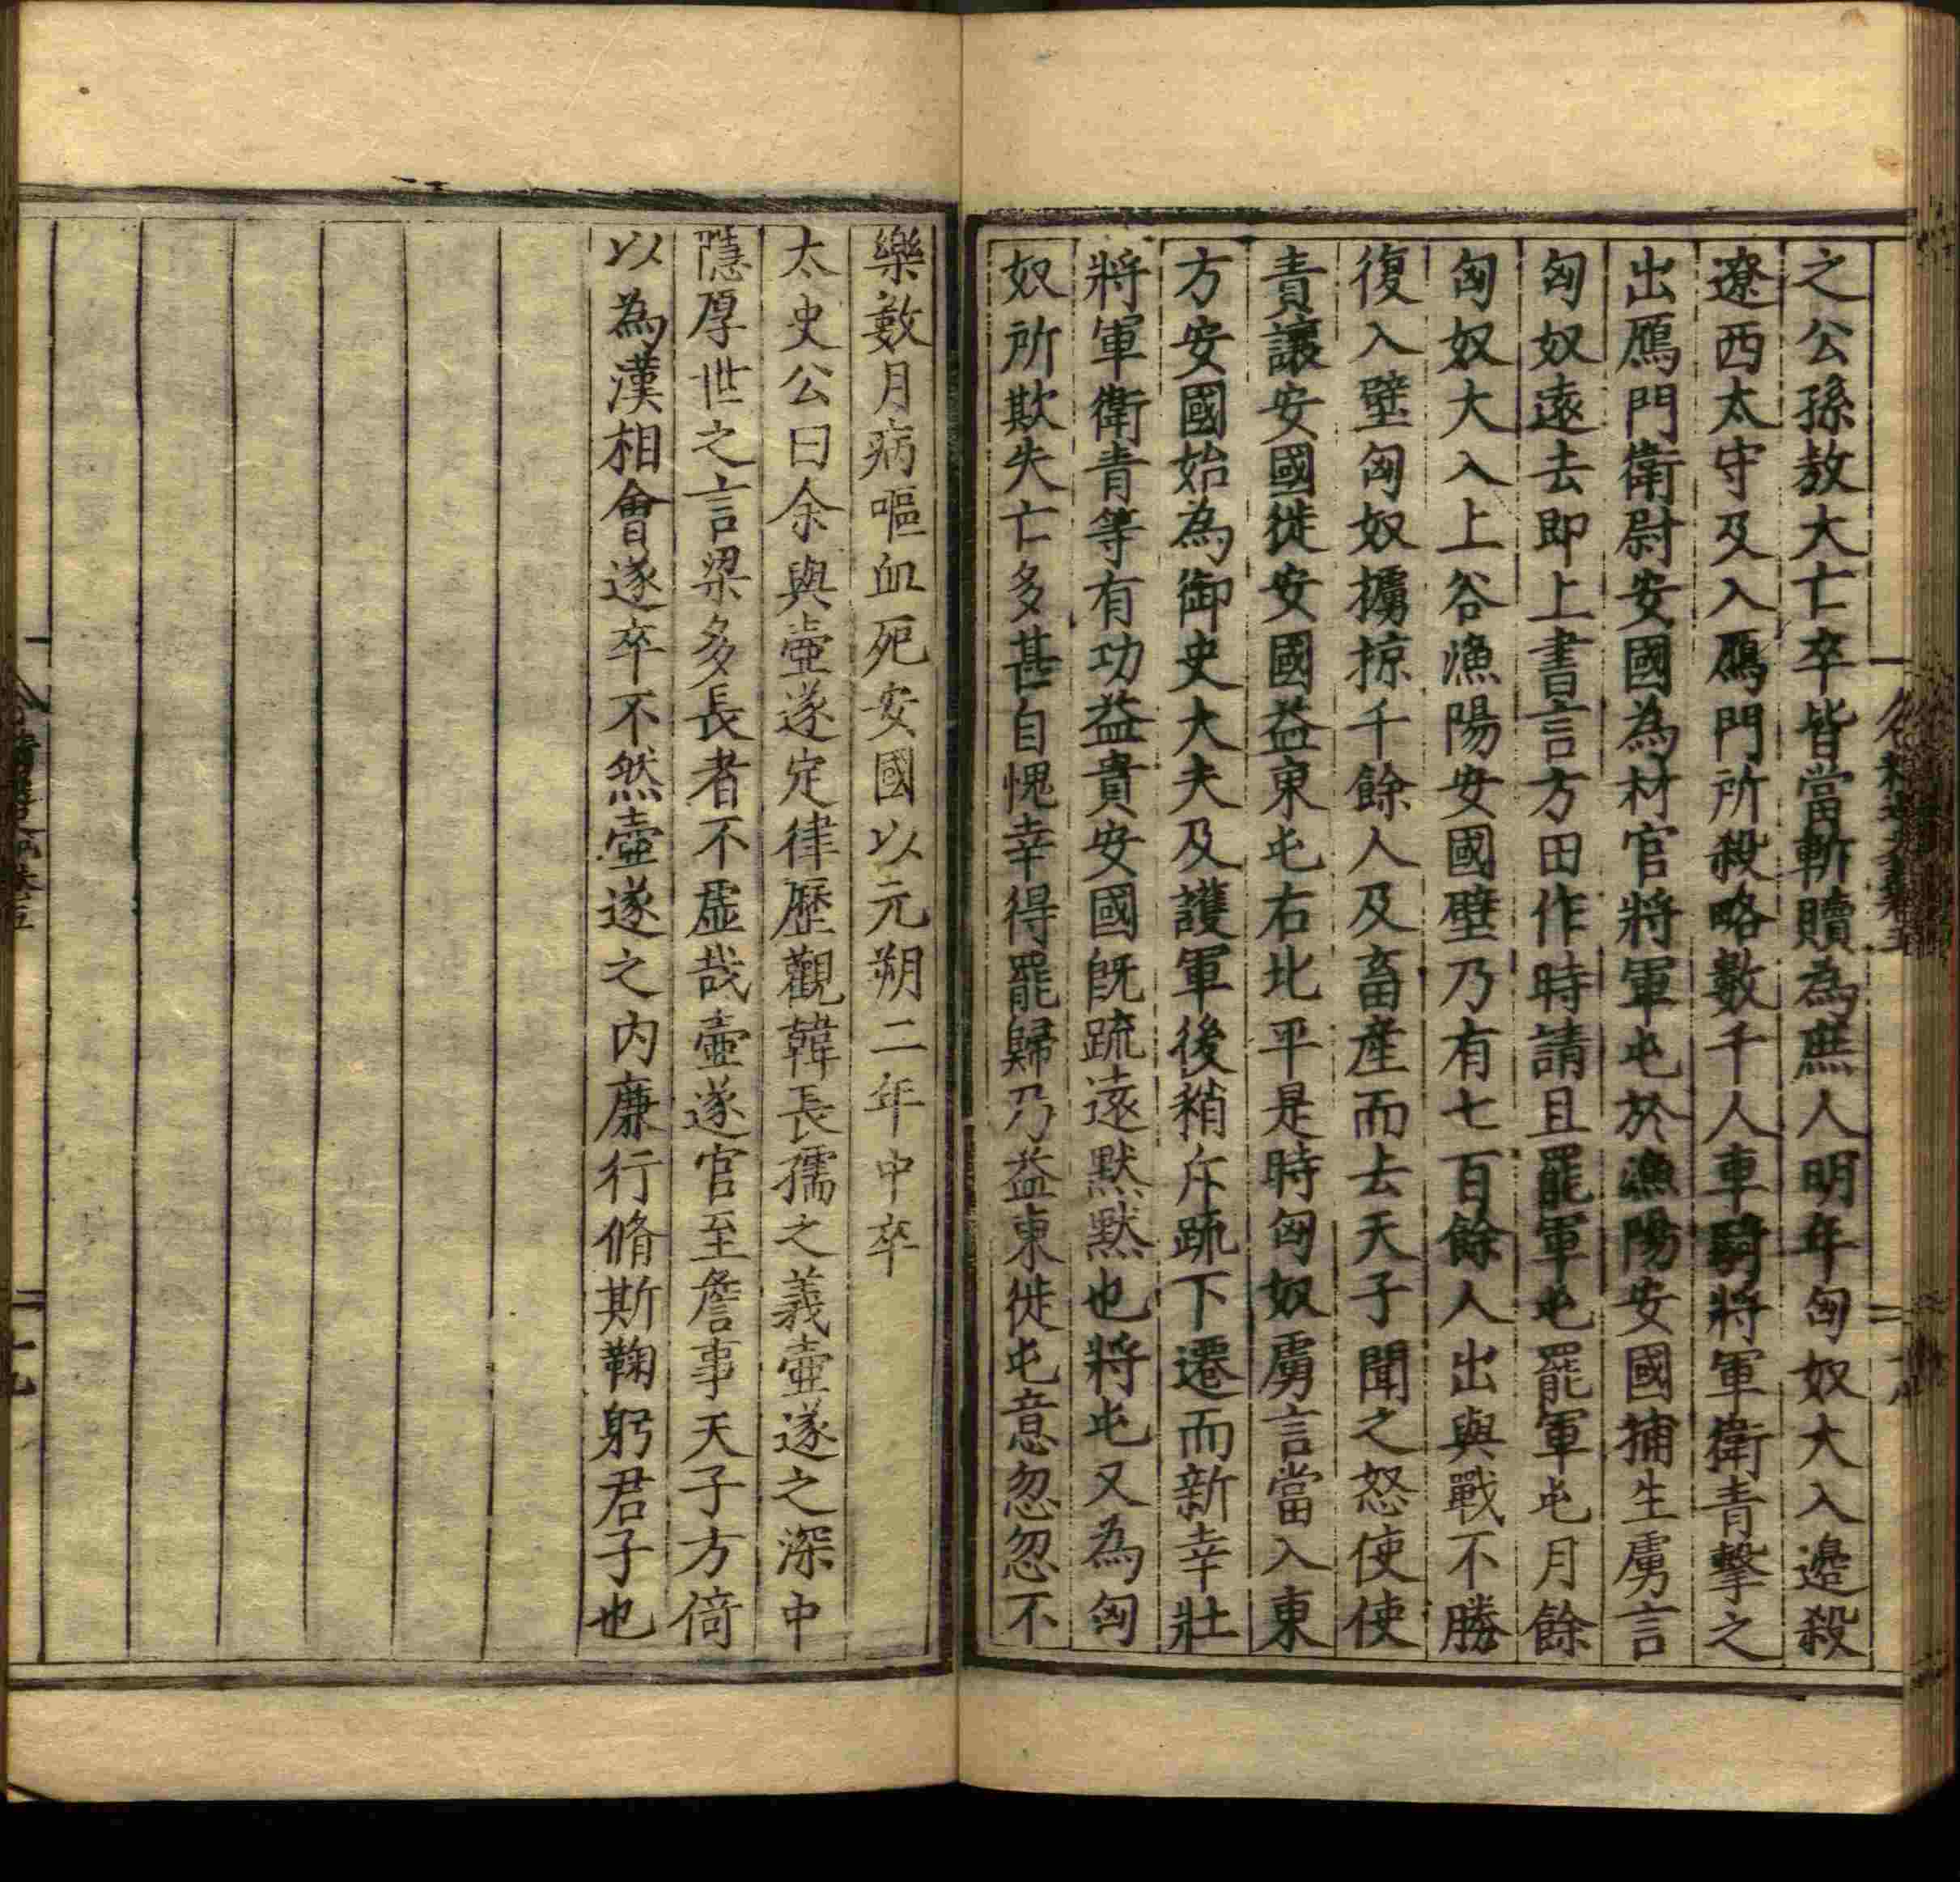 之公孫敖大亡卒皆當斬贖為庶人明年匈奴大入邊殺
遼西太守及入鴈門所殺略數千人車騎將軍衛青擊之
出鴈門衛尉安國為材官將軍屯於漁陽安國捕生虜言
匈奴遠去即上書言方田作時請且罷軍屯罷軍屯月餘
匈奴大入上谷漁陽安國壁乃有七百餘人出與戰不勝
復入壁匈奴擄掠千餘人及畜産而去天子聞之怒使使
責讓安國徙安國益東屯右北平是時匈奴虜言當入東
方安國始為御史大夫及護軍後稍斥疏下遷而新幸壯
將軍衛青等有功益貴安國旣疏遠黙黙也將屯又為匈
奴所欺失亡多甚自愧幸得罷歸乃益東徙屯意忽忽不
樂數月病嘔血死安國以元朔二年中卒
太史公曰余與壺遂定律歷觀韓長孺之義壺遂之深中
隱厚世之言梁多長者不虛哉壺遂官至詹事天子方倚
以為漢相會遂卒不然壺遂之内廉行脩斯鞠躬君子也